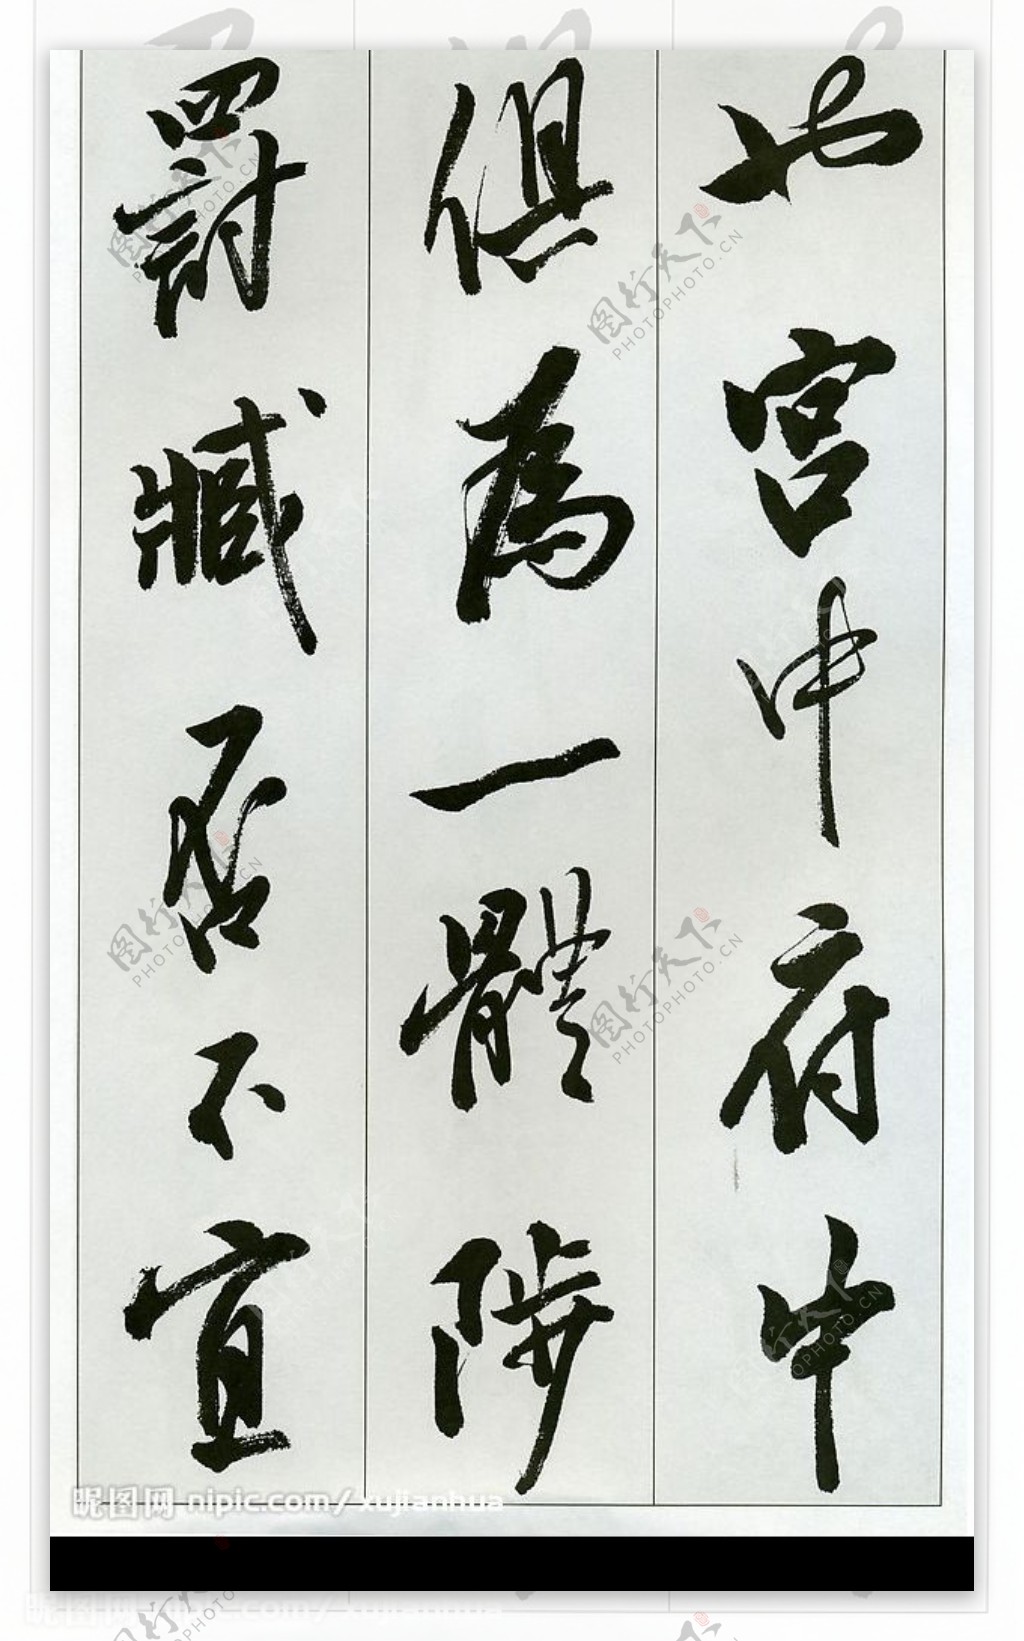 也宫中府中
俱為一體陟
罰臧否不宜
昵图网 nipic.com/ xujianhua
图行天下
PHOTOPHOTO.CN
图行天下
PHOTOPHOTO.CN
图行天下
PHOTOPHOTO.CN
图行天下
PHOTOPHOTO.CN